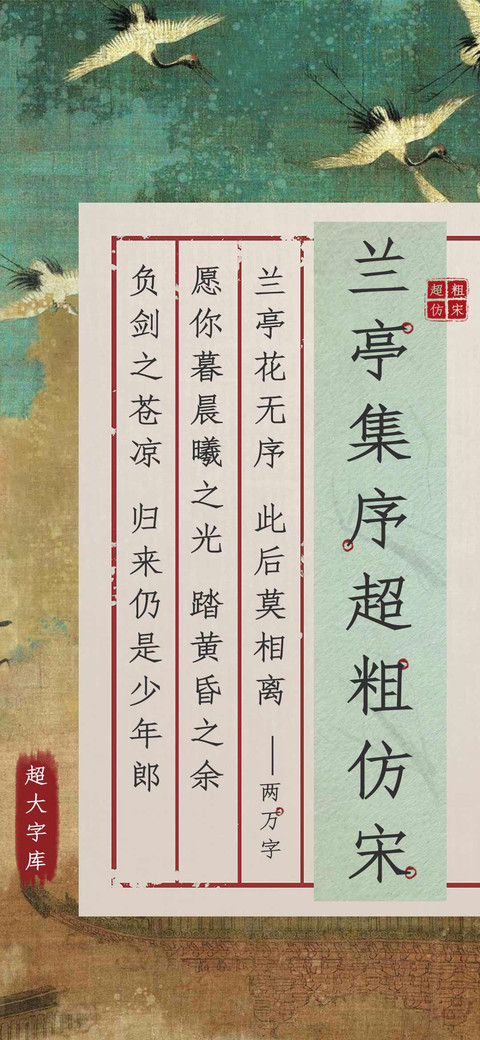 兰亭集序超粗仿宋
超粗仿宋
兰亭花无序 此后莫相离 ——两万字
愿你暮晨曦之光 踏黄昏之余
负剑之苍凉 归来仍是少年郎
超大字库